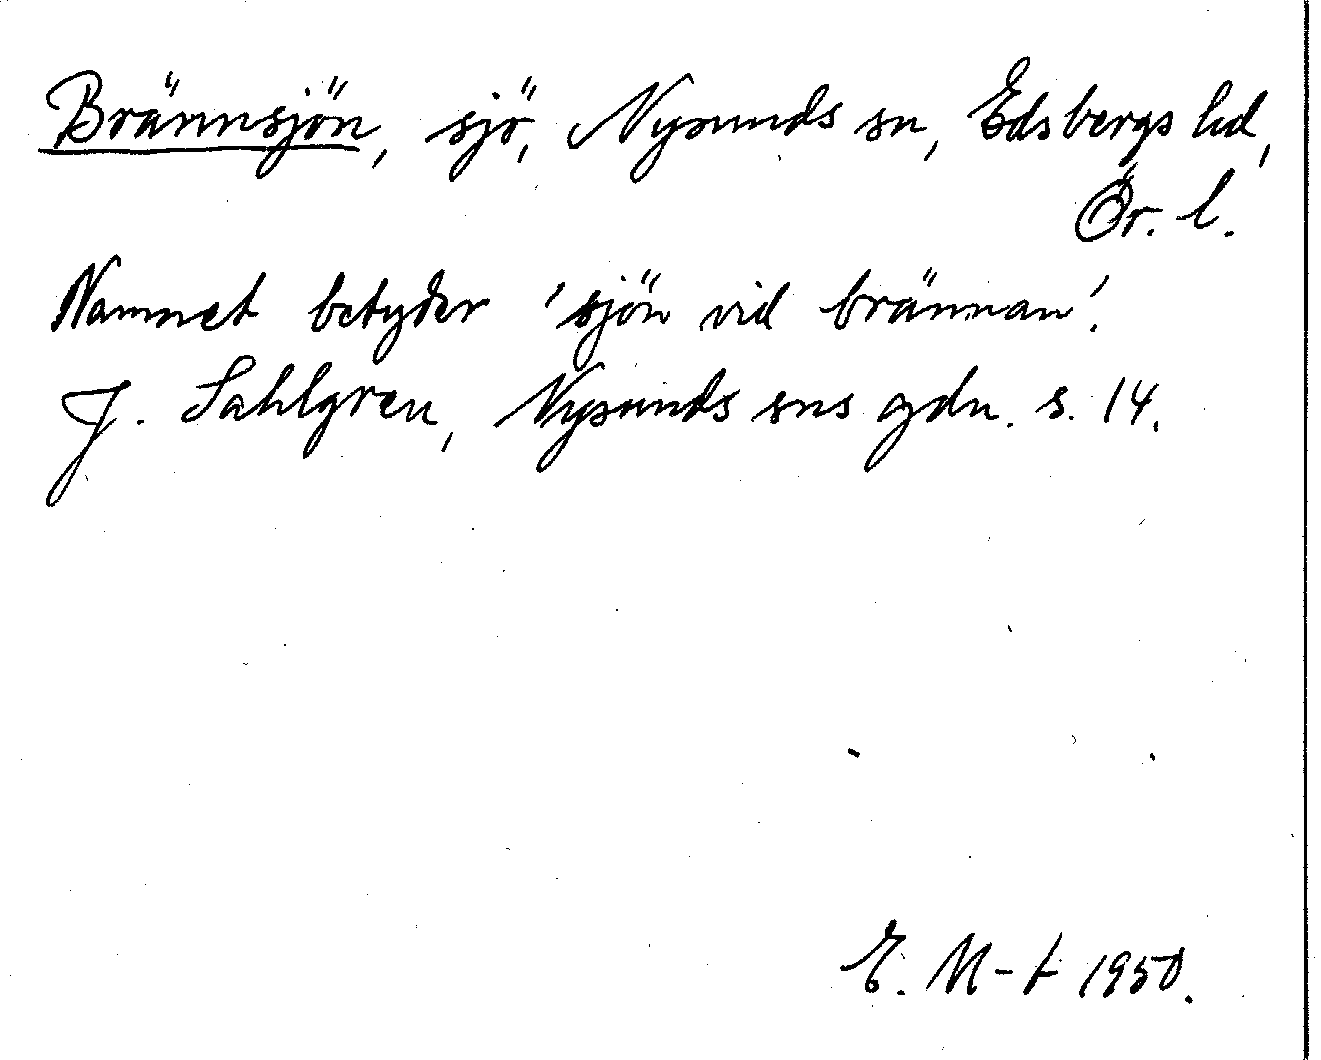 Brännsjön, sjö, Nysunds sn, Edsbergs hd,
Ör. l.
Namnet betyder 'sjön vid brännan'.
J. Sahlgren, Nysunds sns gdn. s. 14.
E. M-t 1950.